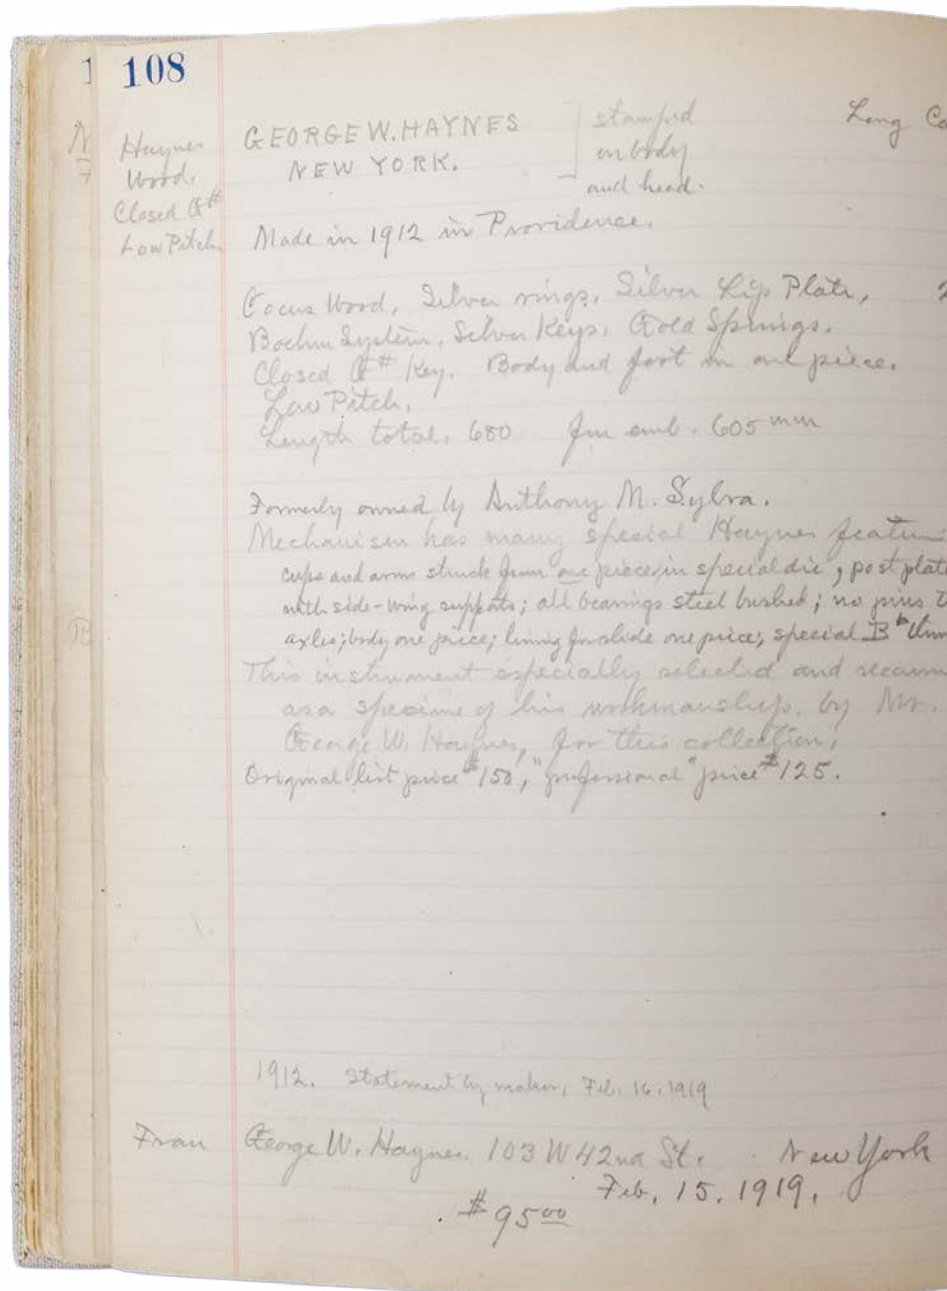 1 108
GEORGE W. HAYNES
NEW YORK.
stamped
on body
and head.
Long Co
Haynes
Wood.
Closed G#
Low Pitch.
Made in 1912 in Providence.
Cocus Wood, Silver rings, Silver Lip Plate,
Boehm System, Silver Keys, Gold Springs.
Closed G# Key. Body and foot in one piece.
Low Pitch.
Length total. 680 fm emb. 605 mm
Formerly owned by Anthony M. Sylva.
Mechanism has many special Haynes featu
cups and arms struck from one piece, in special die; post plat
with side-wing supports; all bearings steel bushed; no pins t
axles; body one piece; lining for slide one piece; special Bb thum
This instrument especially selected and recom
as a specimen of his workmanship, by Mr.
George W. Haynes, for this collection.
Original list price $150, "professional" price $125.
1912. Statement by maker, Feb. 16. 1919
From George W. Haynes. 103 W 42nd St. New York
Feb. 15. 1919.
$95 00